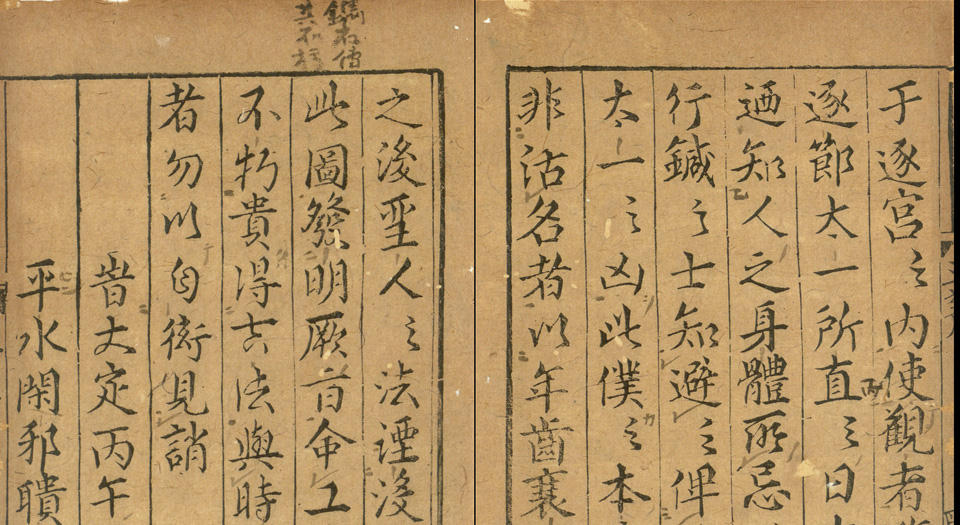 于逐宮之内使觀者
逐節太一所直之日
迺知人之身體所忌
行鍼之士知避之俾
太一之凶此僕之本
非沽名者以年齒衰
之後聖人之法湮沒
此圖發明厥旨命工
不朽貴得古法與時
者勿以自衒見誚
時大定丙午
平水閑邪聵